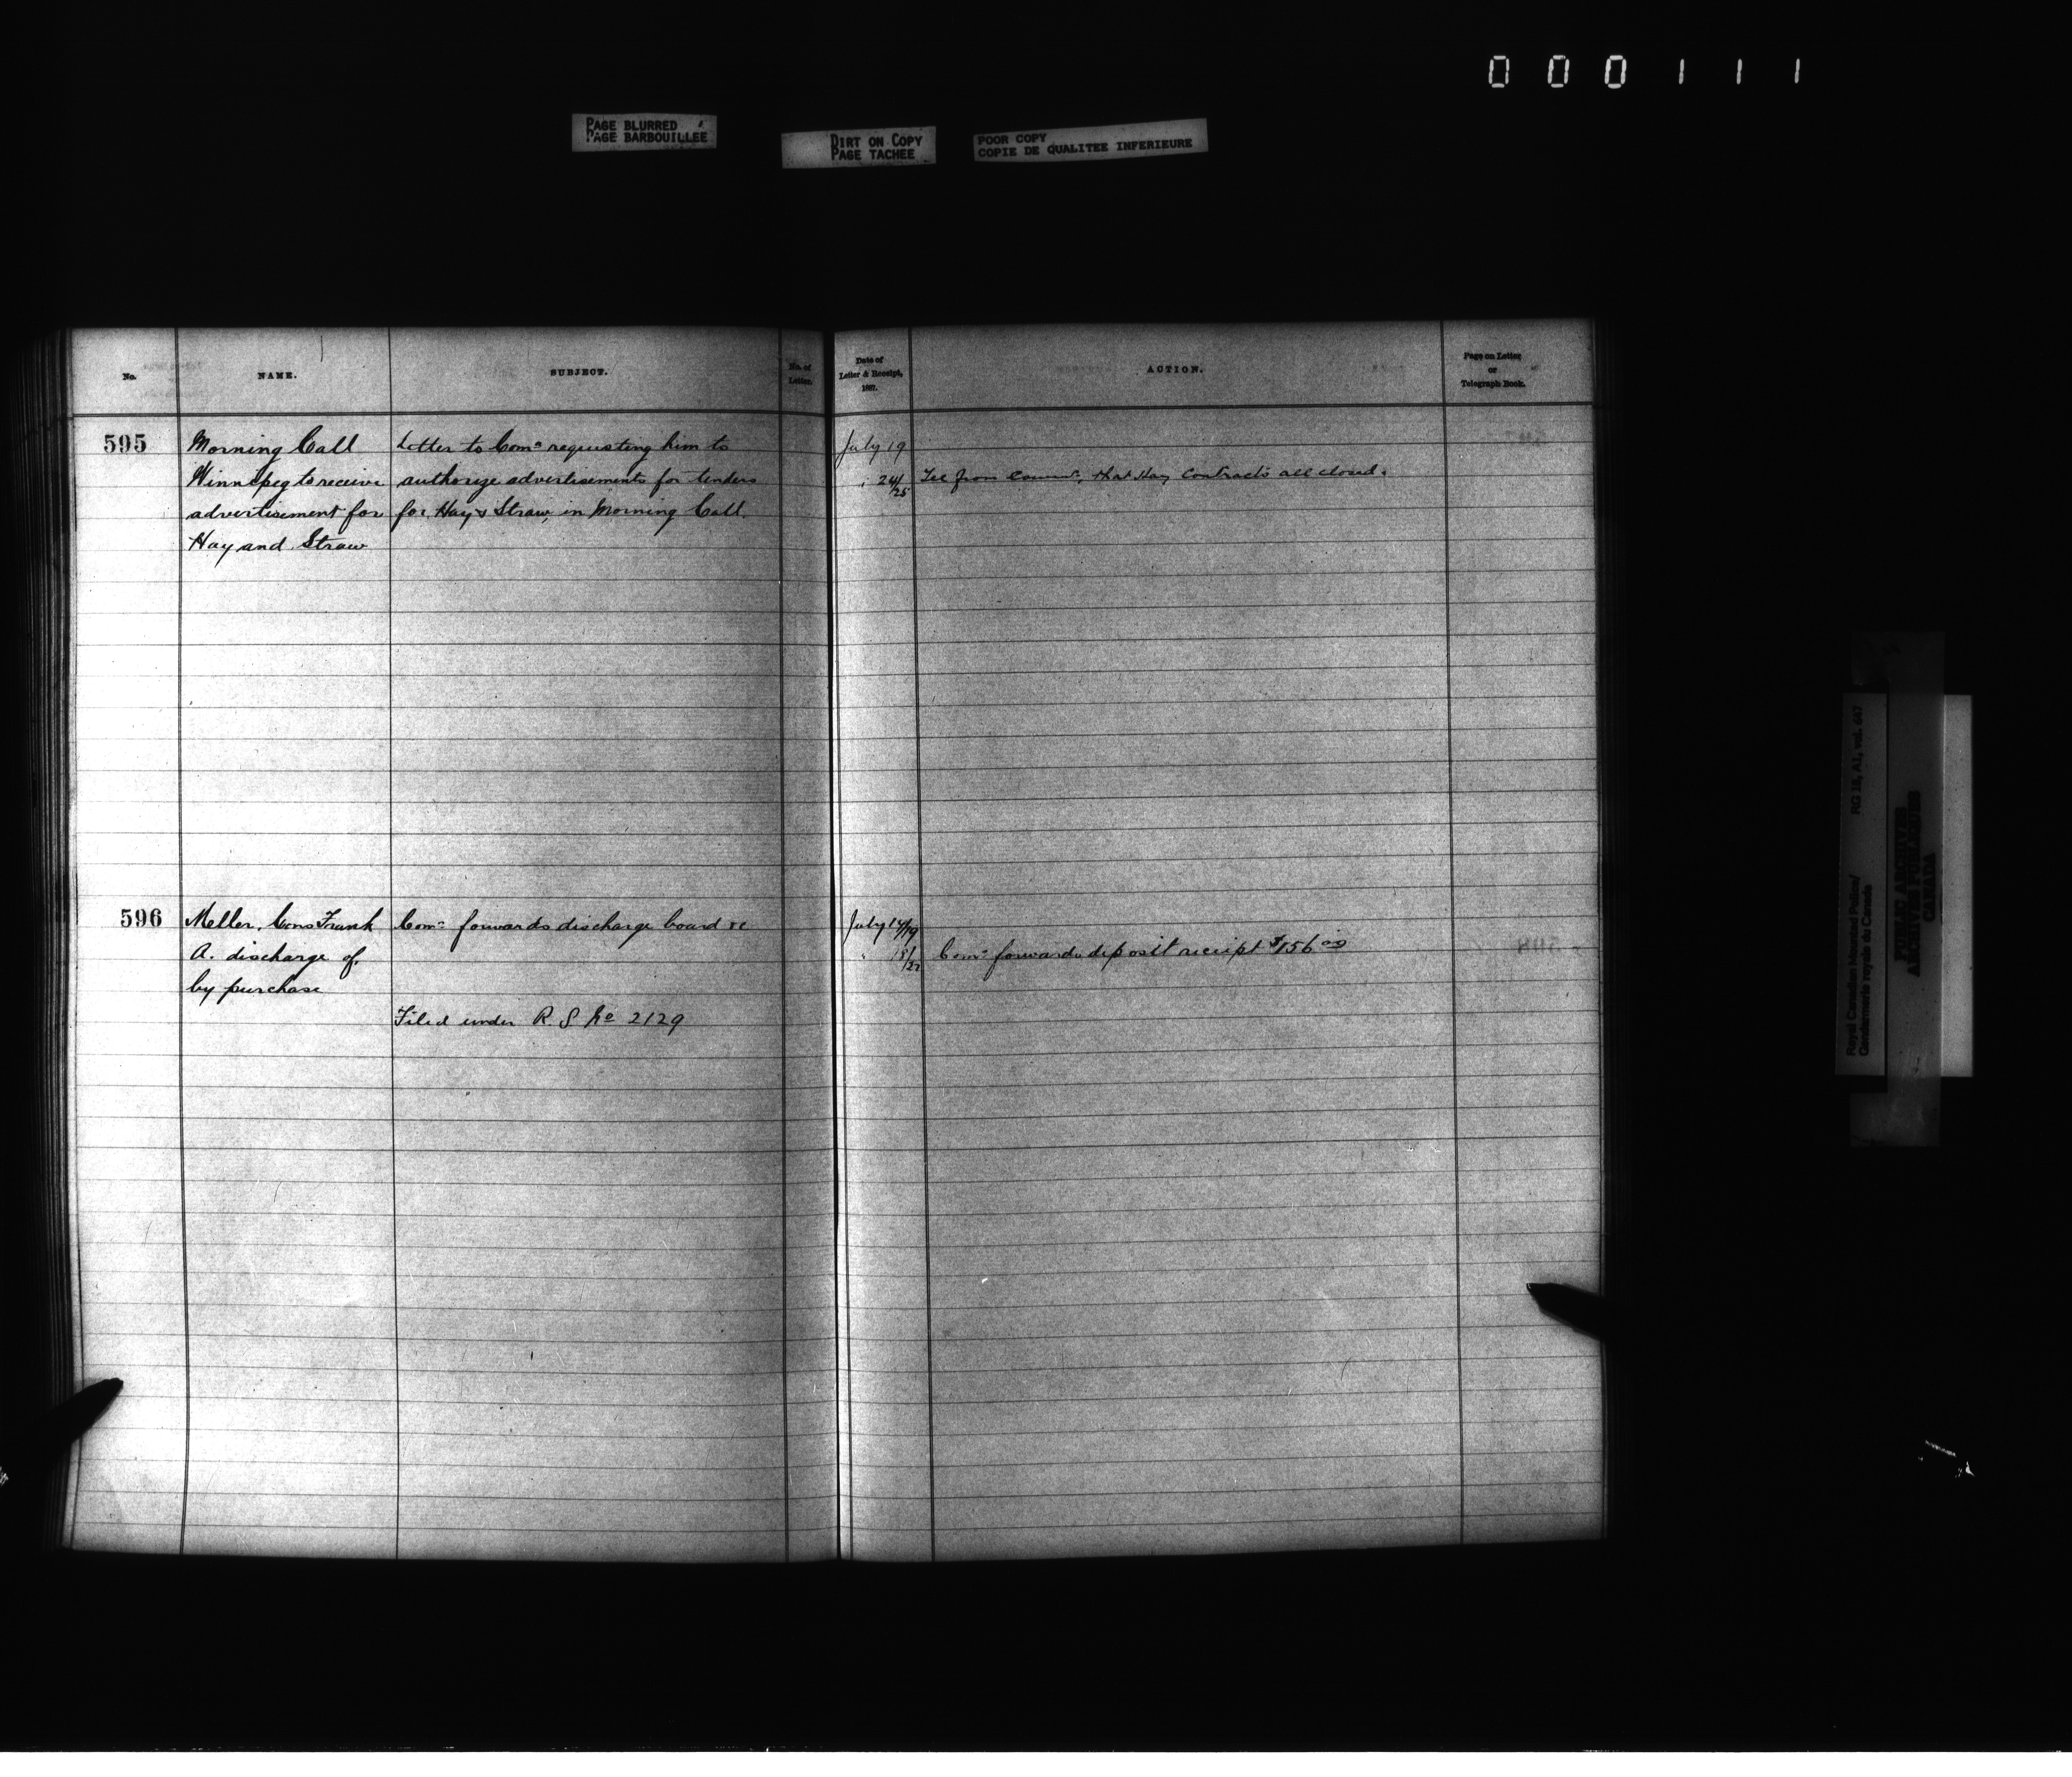 000111
PAGE BLURRED
PAGE BARBOUILLEE
DIRT ON COPY
PAGE TACHEE
POOR COPY
COPIE DE QUALITEE INFERIEURE
No.
NAME.
SUBJECT.
No. of
Letter.
Date of
Letter & Receipt,
1887.
ACTION.
Page on Letter
or
Telegraph Book.
595
Morning Call
Winnipeg to receive
advertisement for
Hay and Straw
Letter to Comr requesting him to
authorize advertisements for tenders
for Hay & Straw, in Morning Call.
July 19
" 24/25
Tel from Commr, that Hay Contracts all closed.
596
Meller, Cons Frank
A. discharge of,
by purchase
Comr forwards discharge board &c
Filed under R. S No 2129
July 14/19
" 18/22
Comr forwards deposit receipt $156 00
Royal Canadian Mounted Police/
Gendarmerie royale du Canada
RG 18, A1, vol. 667
PUBLIC ARCHIVES
ARCHIVES PUBLIQUES
CANADA